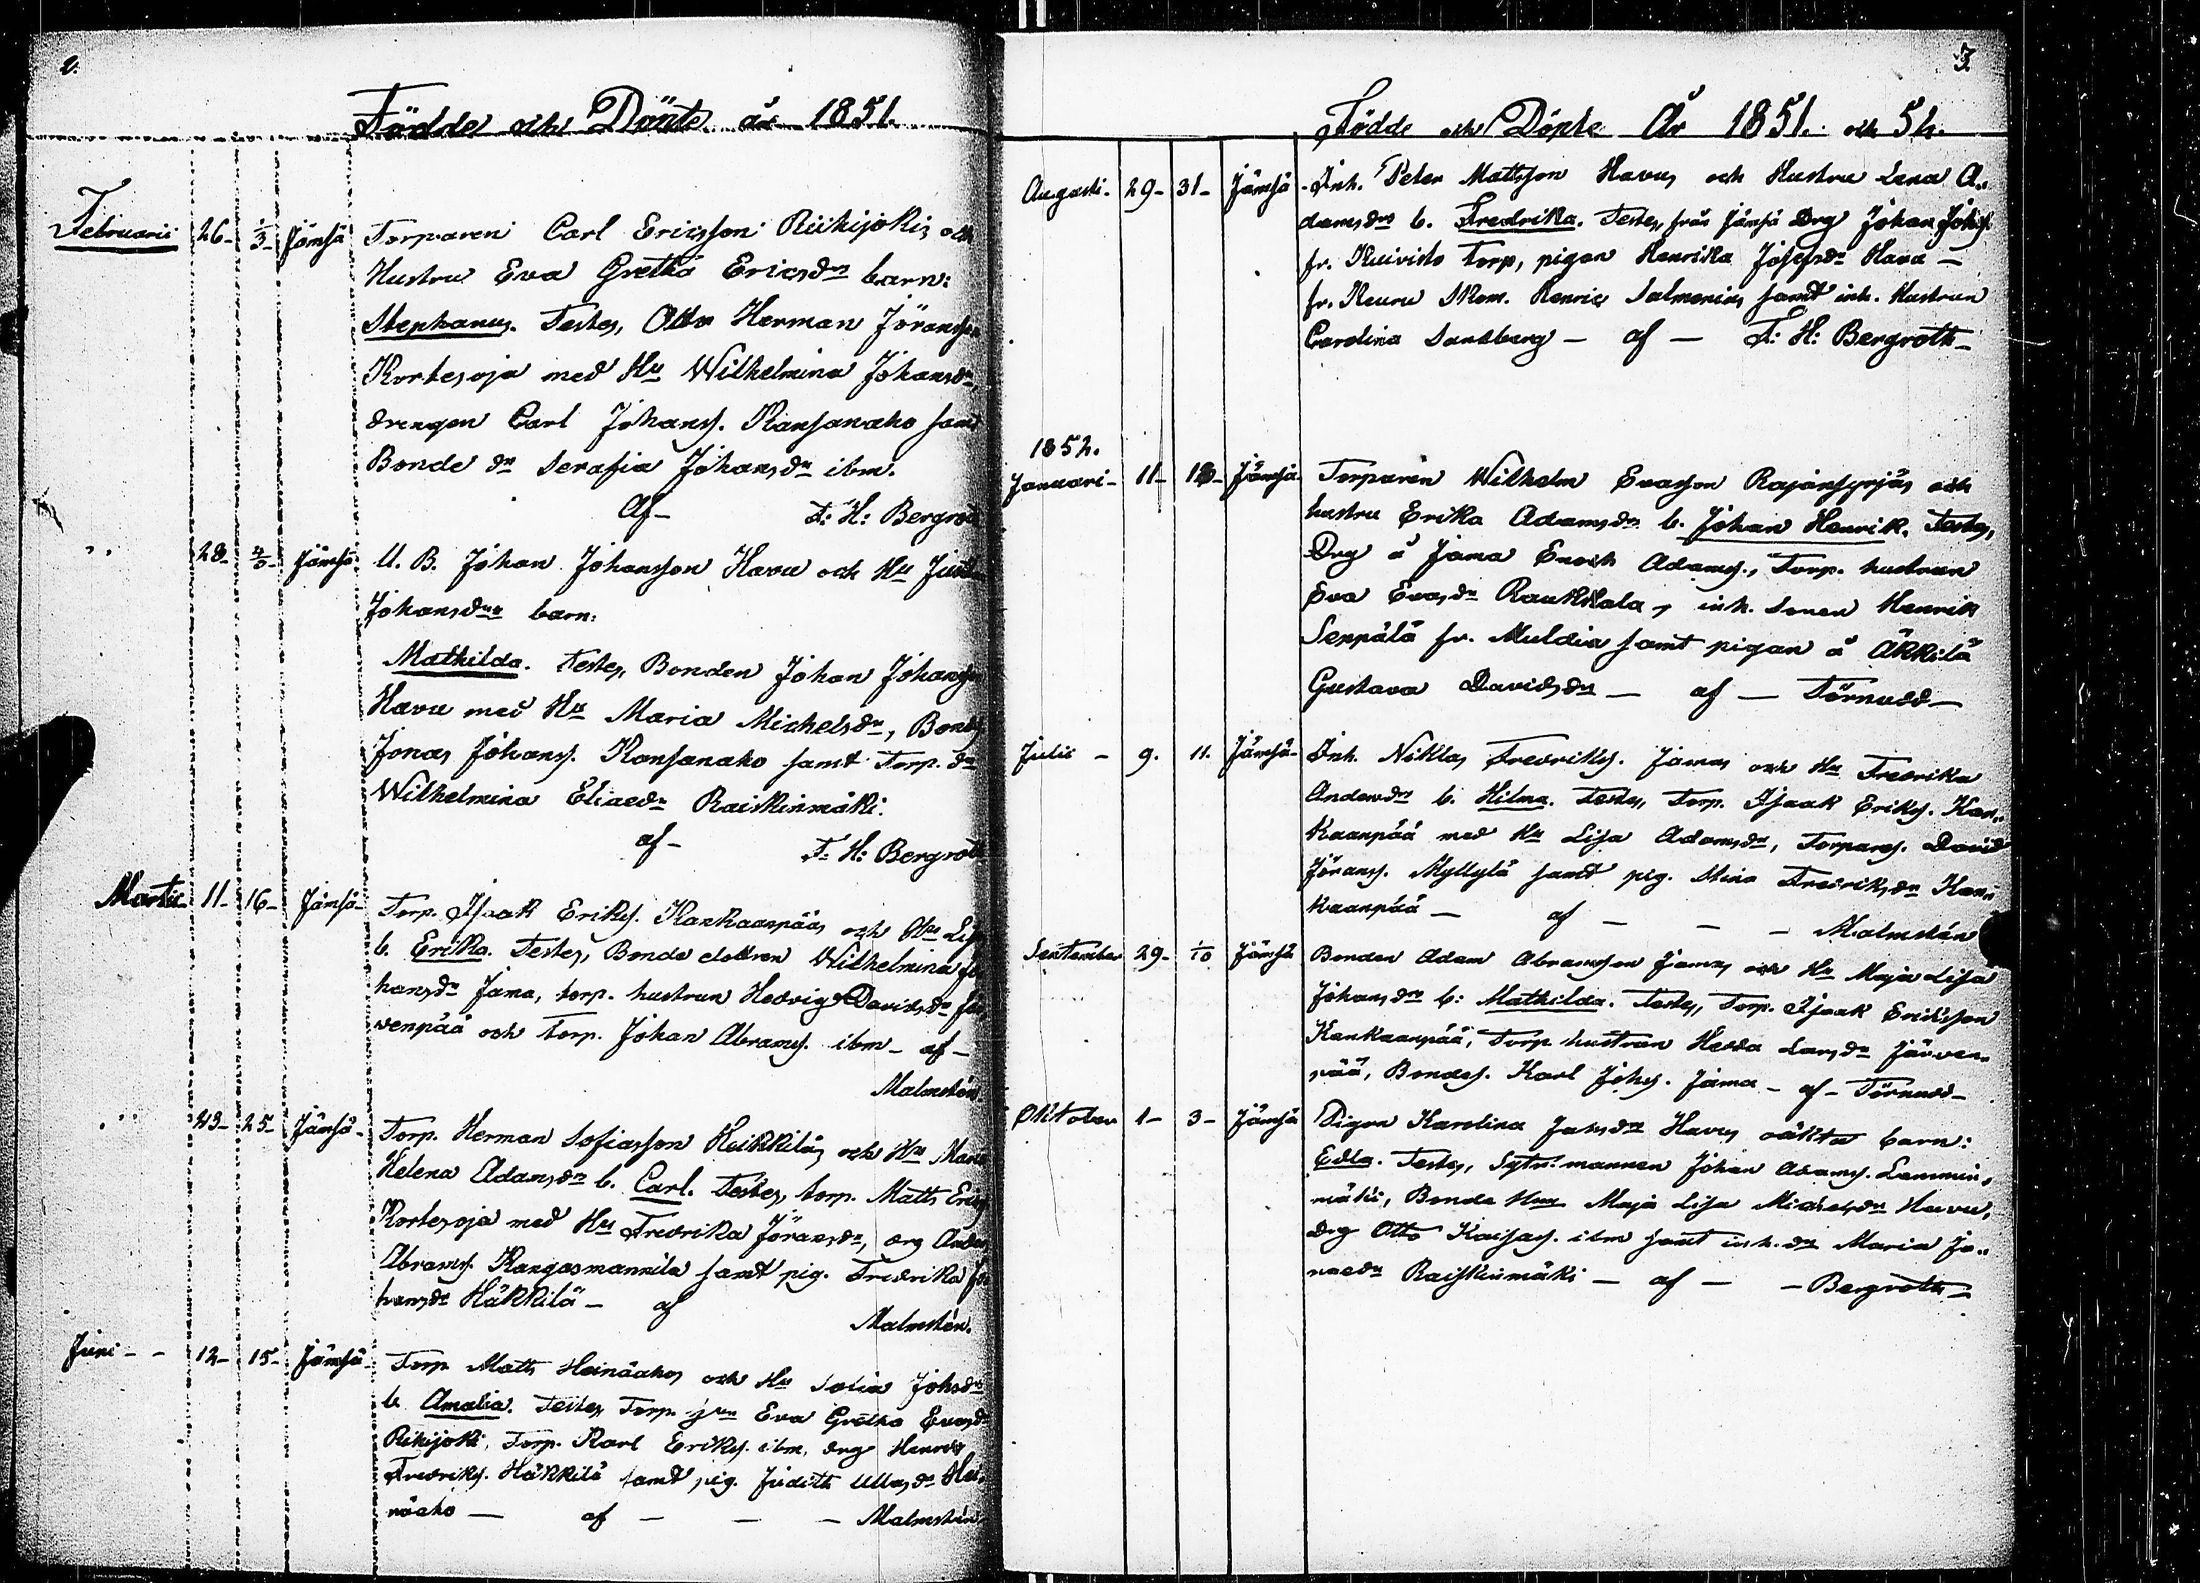 2.
Födde och Döpte år 1851.
Februarii 26- 1/3- Jämsä Torparen Carl Ericsson Riikijokis och
Hustru Eva Gretha Ericsdr barn:
Stephanus. Testes, Otto Herman Jöransson
Kortesoja med Hu Wilhelmina Johansdr,
drengen Carl Johanss. Kansanaho samt
Bonde dr Serafia Johansdr ibm.
Af- F: H: Bergroth
" 28- Jämsä U. B. Johan Johansson Havu och Hu
Johansdrs barn:
Mathilda. Testes, Bonden Johan Johansson
Havu med Hu Maria Michelsdr, Bondes.
Jonas Johanss. Kansanaho samt Torp. dr
Wilhelmina Eliaedr Raiskinmäki:
af- F: H: Bergroth
Martii 11- 16- Jämsä- Torp. Isaak Eriks. Kankaanpääs och Hus Lisa
b. Erika. Testes, Bonde dottren Wilhelmina Jo
hansdr Jama, torp. hustrun Hedvig Davidsdr Jär
venpää och torp. Johan Abrams. ibm- af-
Malmstén
" 23- 25- Jämsä- Torp. Herman Sofiasson Heikkiläs och Hus Maria
Helena Adamsdr b. Carl. Testes, torp. Matts Erics
Kortesoja med Hu Fredrika Jöransdr, drg Anders
Abrams. Kangasmannila samt pig. Fredrika Jo
hansdr Häkkilä- af
Malmstén.
Juni- - 12- 15- Jämsä- Torp. Matts Heinäahos och Hu Sofia Johsdrs
b. Amalia. Testes Torp. Eva Gretha Evasdr
Rikijoki, Torp. Karl Eriks. ibm, drg Henrik
Fredriks. Häkkilä samt pig. Judith Ullasdr Hei-
näaho — af — — — Malmstén
3.
Födde och Döpte År 1851. och 52.
Augusti- 29- 31- Jämsä- Inh. Peter Mattsson Havus och Hustru Lena A-
damsdrs b. Fredrika. Testes, från Jämsä Drg Johan Johss.
fr. Kuivisto Torp, pigan Henrika Josefsdr Hava —
fr. Keuru Skom. Henric Salmenius samt inh. Hustrun
Carolina Sandberg — af — F: H: Bergroth-
1852.
Januari- 11- 18- Jämsä- Torparen Wilhelm Evasson Rajansyrjäs och
hustru Erika Adamsdrs b. Johan Henrik. Testes,
Drg å Jama Enoch Adams., Torp. hustrun
Eva Evasdr Rautkkala, inh. Sonen Henrik
Seppälä fr. Muldia samt pigan å Äkkilä
Gustava Davidsdr — af — Törnudd-
Julii - 9. 11. Jämsä- Inh. Niklas Fredriks. Jamas och Hu Fredrika
Andersdrs b. Hilma. Testes, Torp. Isaak Eriks. Kan-
kaanpää med Hu Lisa Adamsdr, Torpares. David
Jörans. Myllylä samt pig. Stina Fredriksdr Kan-
kaanpää — af — - - Malmstén
September 29- 1/10 Jämsä Bonden Adam Abramsson Jamas och Hu Maja Lisa
Johansdrs b: Mathilda. Testes, Torp. Isaak Eriksson
Kankaanpää, Torp hustrun Hedda Larsdr Järven-
pää, Bondes. Karl Johs. Jama - af - Törnudd-
Oktober 1- 3- Jämsä Pigan Karolina Jansdr Havus oäkta barn:
Edla. Testes, Sytn. mannen Johan Adams. Lammin-
mäki, Bonde Hun Maja Lisa Michelsdr Havu,
drg Otto Kaisas. ibm samt inh. dr Maria Jo-
naedr Raiskinmäki — af — -Bergroth-